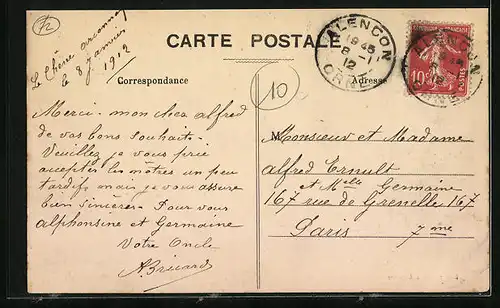 CARTE POSTALE
Correspondance
Adresse
Le Chêne
le 8 janvier
1912
ALENÇON
19 45
8 - 1
12
ORNE
ALENÇON
ORNE
10
POSTES
10
Merci - mon cher alfred
de vos bons souhaits -
Veuillez je vous prie
accepter les nôtres un peu
tardifs mais je vous assure
bien sincères - Pour vous
alphonsine et Germaine
Votre Oncle
M
Monsieur et Madame
alfred Ernult
et Melle Germaine
167 rue de Grenelle 167
Paris 7me